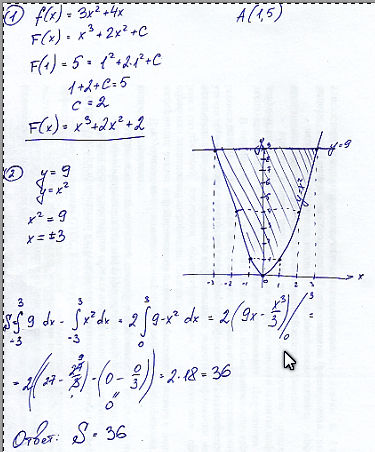 ① f(x) = 3x²+4x A(1,5)
F(x) = x³+2x²+C
F(1) = 5 = 1²+2·1²+C
1+2+C=5
C=2
F(x) = x³+2x²+2
② y=9
y=x²
x²=9
x=±3
y
y=9
y=x²
x
-3 -2 -1 0 1 2 3
S=∫₋₃³ 9 dx - ∫₋₃³ x² dx = 2∫₀³ 9-x² dx = 2(9x - x³/3)|₀³ =
= 2((27 - 27/3) - (0 - 0/3)) = 2·18 = 36
9
0
Ответ: S = 36